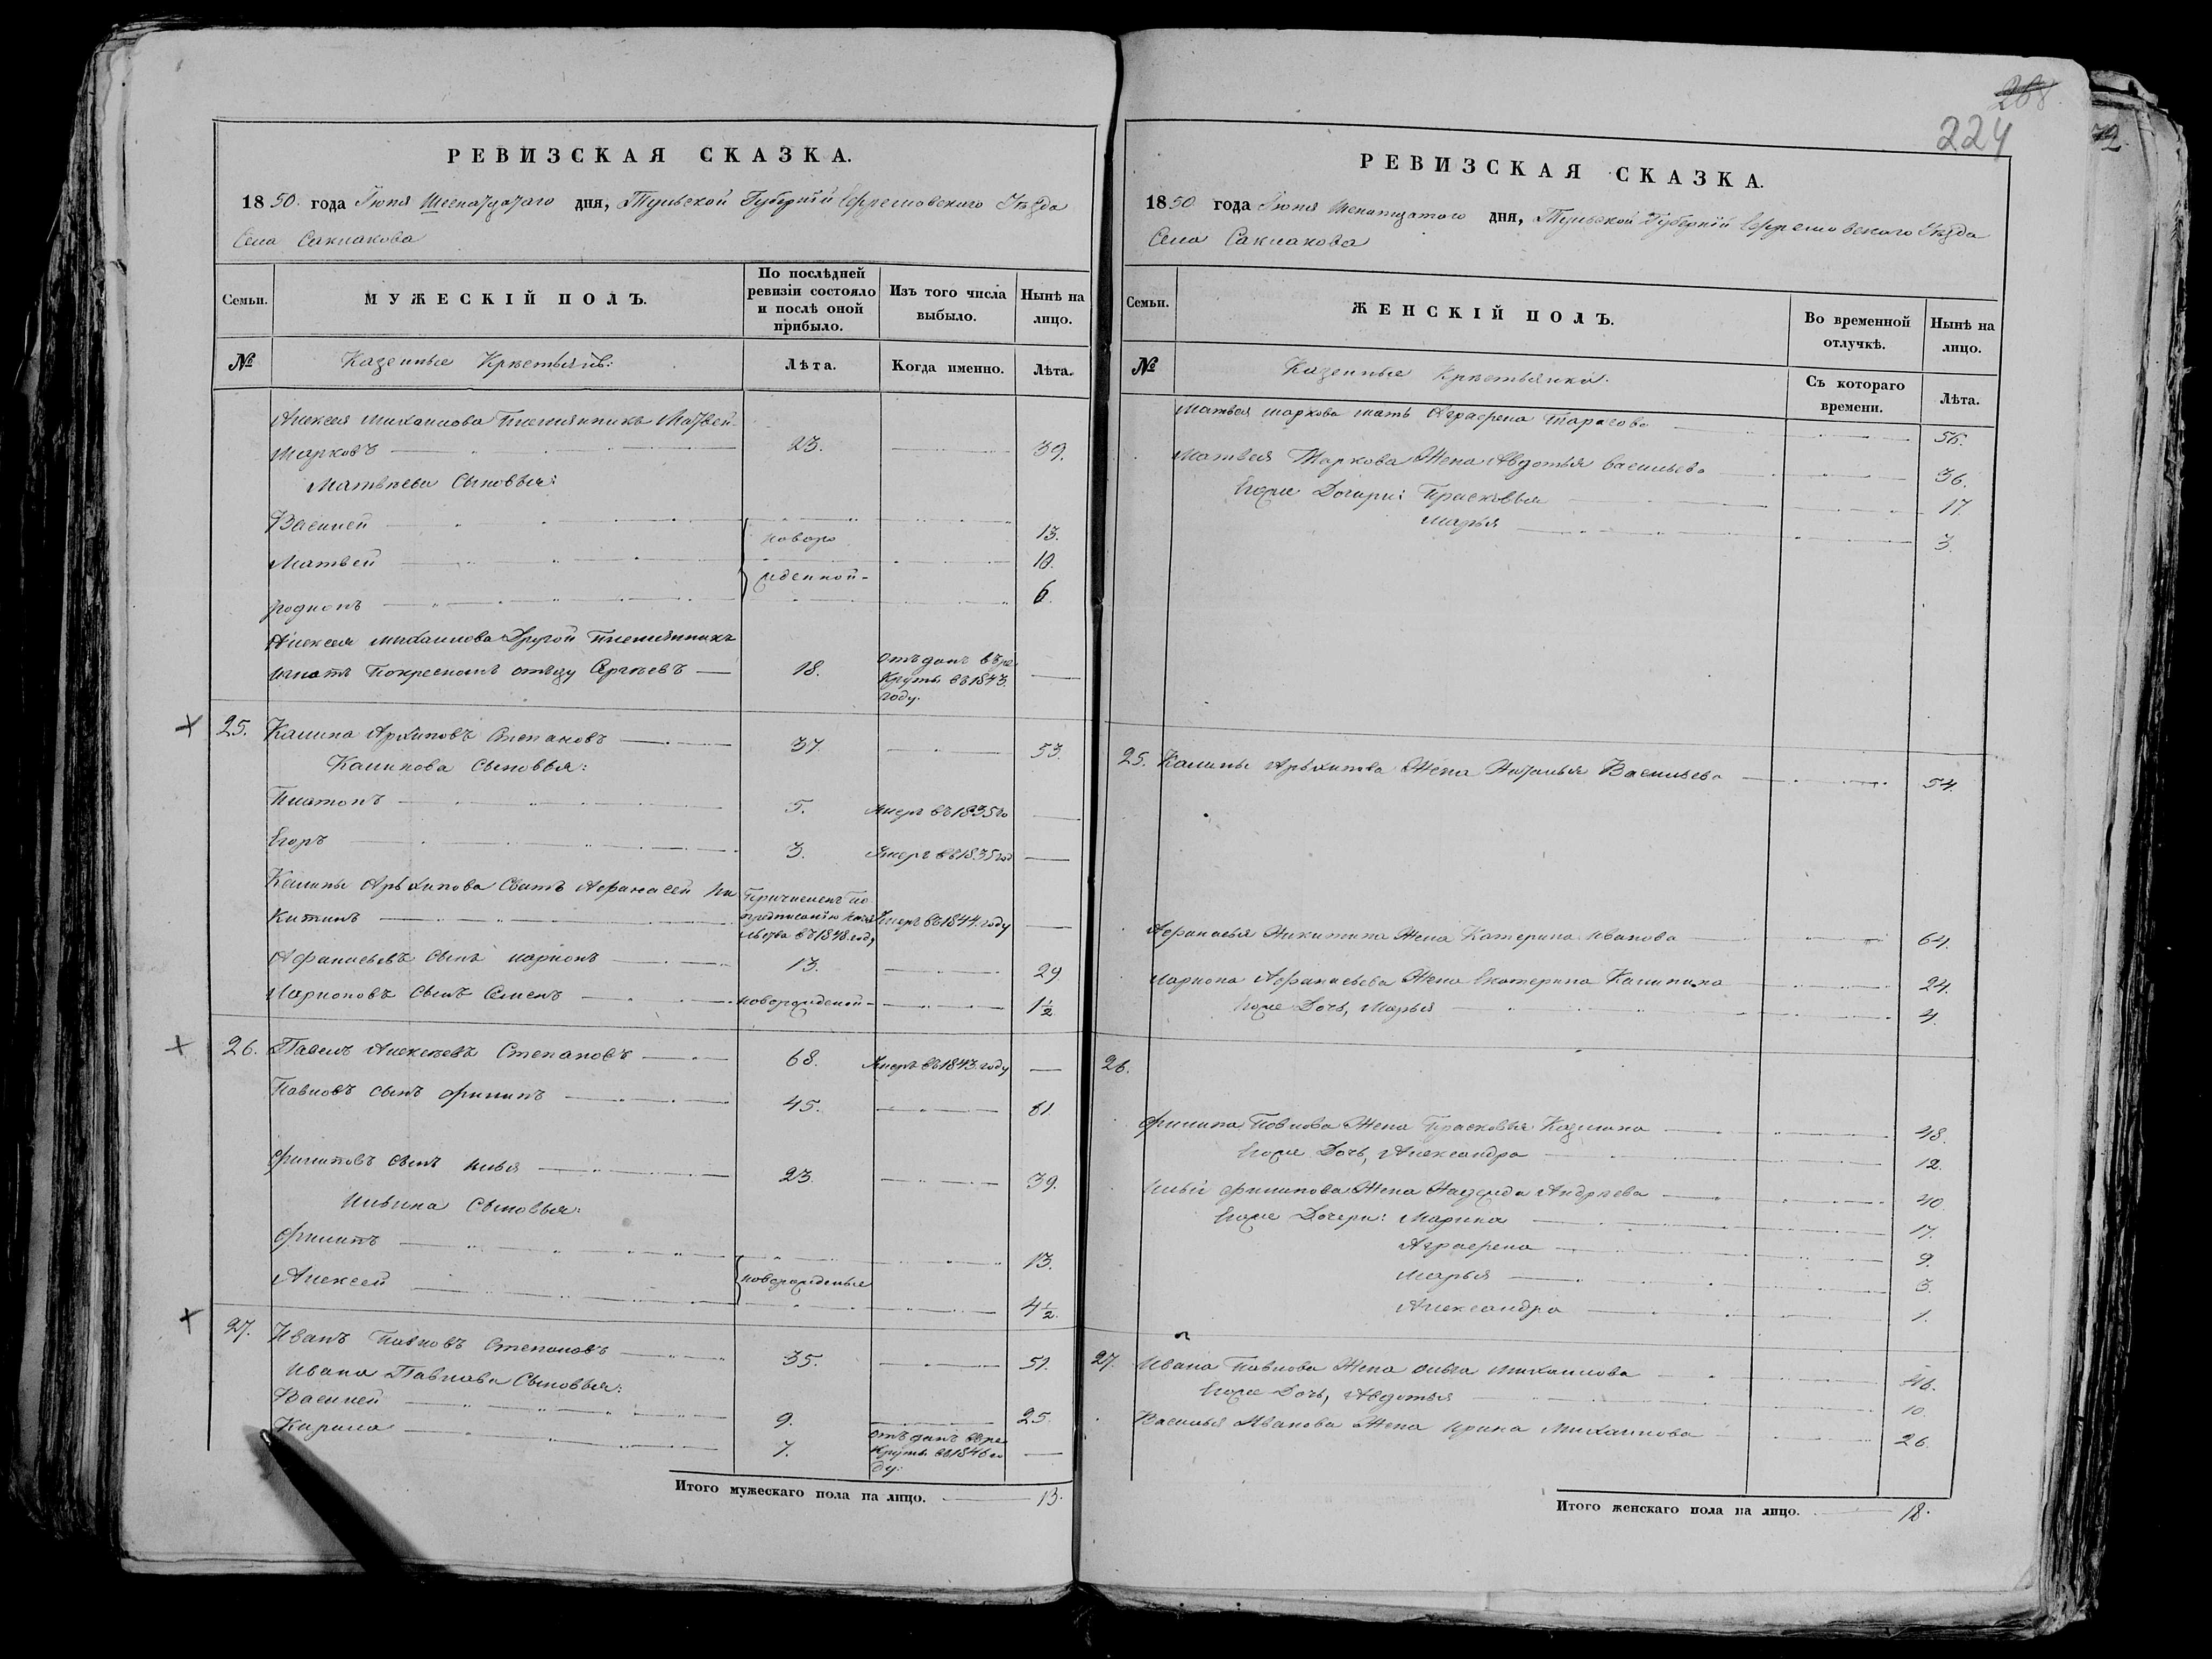 РЕВИЗСКАЯ СКАЗКА.
1850 года Іюня Шеснатцатаго дня, Тульской Губерніи Ефремовскаго Уѣзда
Села Саклакова
Семьи.
МУЖЕСКІЙ ПОЛЪ.
По послѣдней ревизіи состояло и послѣ оной прибыло.
Изъ того числа выбыло.
Нынѣ на лицо.
№
Казенные Крестьянѣ:
Лѣта.
Когда именно.
Лѣта.
Алексея Михаилова Племянникъ Матвей
Марковъ 23. 39.
Матвѣевы Сыновья:
Василей 13.
новоро
Матвей 10.
жденной
родионъ 6.
Алексея Михаилова Другой племянникъ
Игнатъ Покресному отцу Сергѣевъ 18. отъданъ въ ре
круты въ 1843.
году.
25. Калина Архиповъ Степановъ 37. 53.
Калинова Сыновья:
Платонъ 5. Умеръ въ 1835 го
Егоръ 3. Умеръ въ 1835 год
Калины Архипова Сватъ Афанасей Ни
китинъ Причисленъ по
Умеръ въ 1844. году
въ 1848. году
Афанасьевъ сынъ ларионъ 13. 29
Ларионовъ сынъ Семенъ новорожденой 1½
26. Павелъ Алексѣевъ Степановъ 68. Умеръ въ 1843. году
Павловъ сынъ филипъ 45. 61.
филиповъ сынъ илья 23. 39.
Ильина Сыновья:
филипъ 13.
новорожденые
Алексей 4½.
27. Иванъ Павловъ Степановъ 35. 51.
Ивана Павлова Сыновья:
Василей 9. 25.
Кирила 7. отъданъ въ ре
круты въ 1846 го
ду:
Итого мужескаго пола на лицо. 13.
208.
224
РЕВИЗСКАЯ СКАЗКА.
1850 года Іюня Шенатцатого дня, Тульской Губерніи Ефремовскаго Уѣзда
Села Саклакова
Семьи.
ЖЕНСКІЙ ПОЛЪ.
Во временной отлучкѣ.
Нынѣ на лицо.
№
Казенные Крестьянки.
Съ котораго времени.
Лѣта.
Матвея маркова мать Аграфена Тарасова 56.
Матвея Маркова Жена Авдотья васильева 36.
Егоже Дочири: Прасковья 17.
Марья 3.
25. Калины Архипова Жена Наталья Васильева 54.
Афанасья Никитина Жена Катерина иванова 64.
лариона Афанасьева Жена Екатерина Калинина 24.
Егоже Дочь, Марья 4.
26.
филипа Павлова Жена Прасковья Козмина 48.
Егоже Дочь, Александра 12.
Ильи филипова Жена Надежда Андреева 40.
Егоже Дочери: Марина 17.
Аграфена 9.
Марья 3.
Александра 1.
27. Ивана Павлова Жена ольга михаилова 46.
Егоже Дочь, Авдотья 10.
Василья Иванова Жена Ирина Михаилова 26.
Итого женскаго пола на лицо. 18.